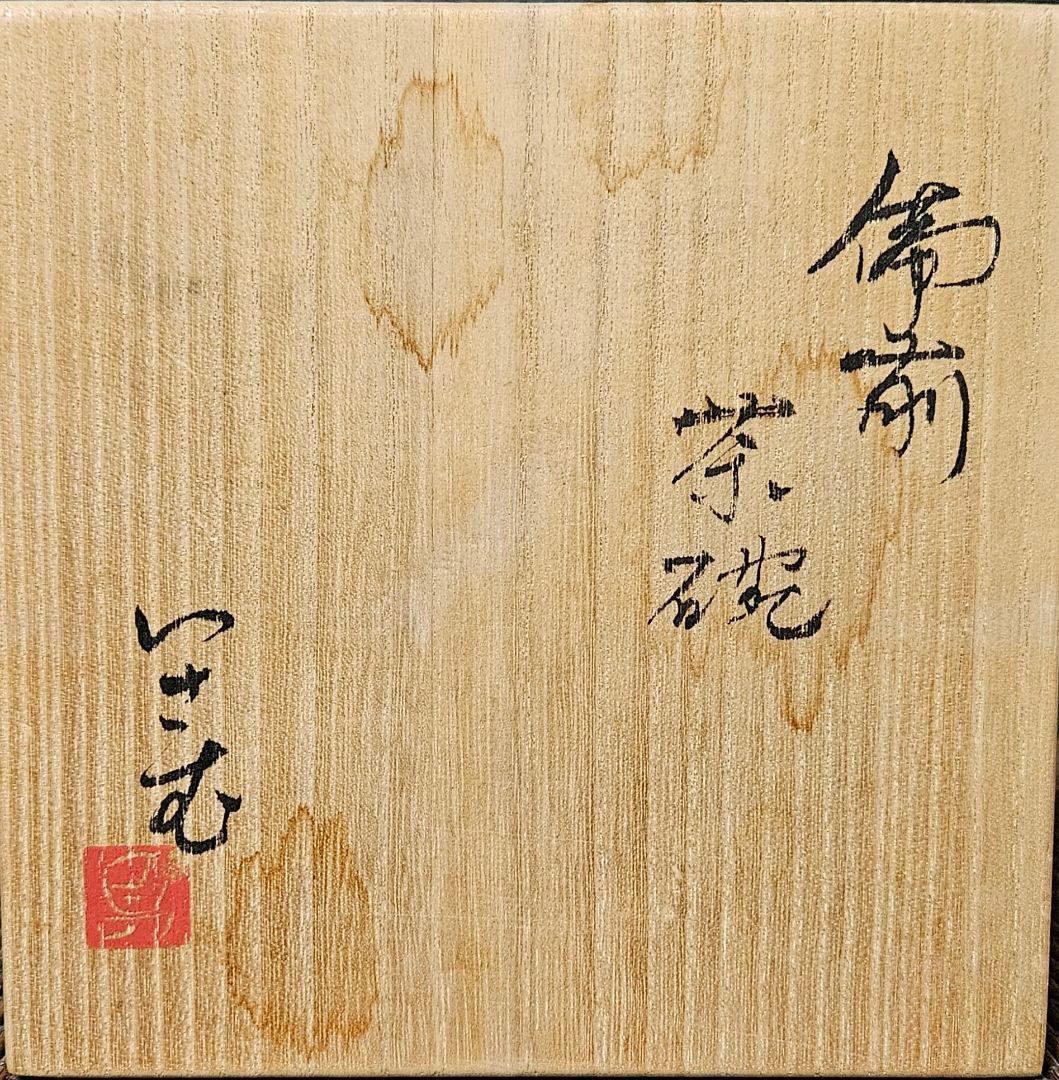 備前
茶碗
いさむ